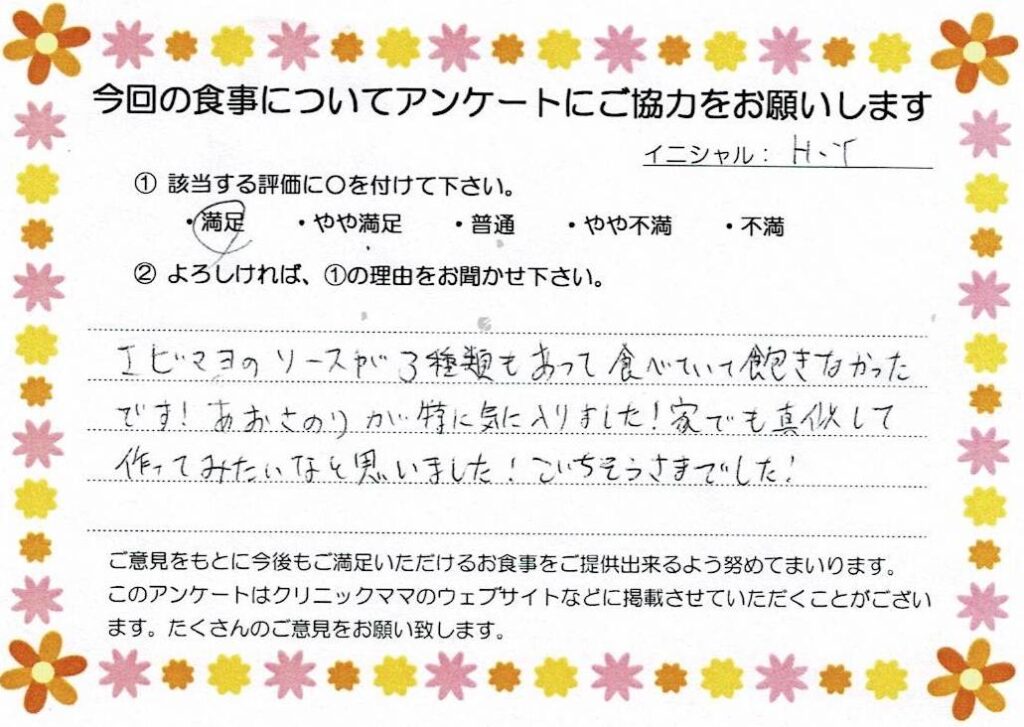 今回の食事についてアンケートにご協力をお願いします
イニシャル： H.Y
① 該当する評価に〇を付けて下さい。
・満足 ・やや満足 ・普通 ・やや不満 ・不満
② よろしければ、①の理由をお聞かせ下さい。
エビマヨのソースが3種類もあって食べていて飽きなかった
です！あおさのりが特に気に入りました！家でも真似して
作ってみたいなと思いました！ごちそうさまでした！
ご意見をもとに今後もご満足いただけるお食事をご提供出来るよう努めてまいります。
このアンケートはクリニックママのウェブサイトなどに掲載させていただくことがござい
ます。たくさんのご意見をお願い致します。